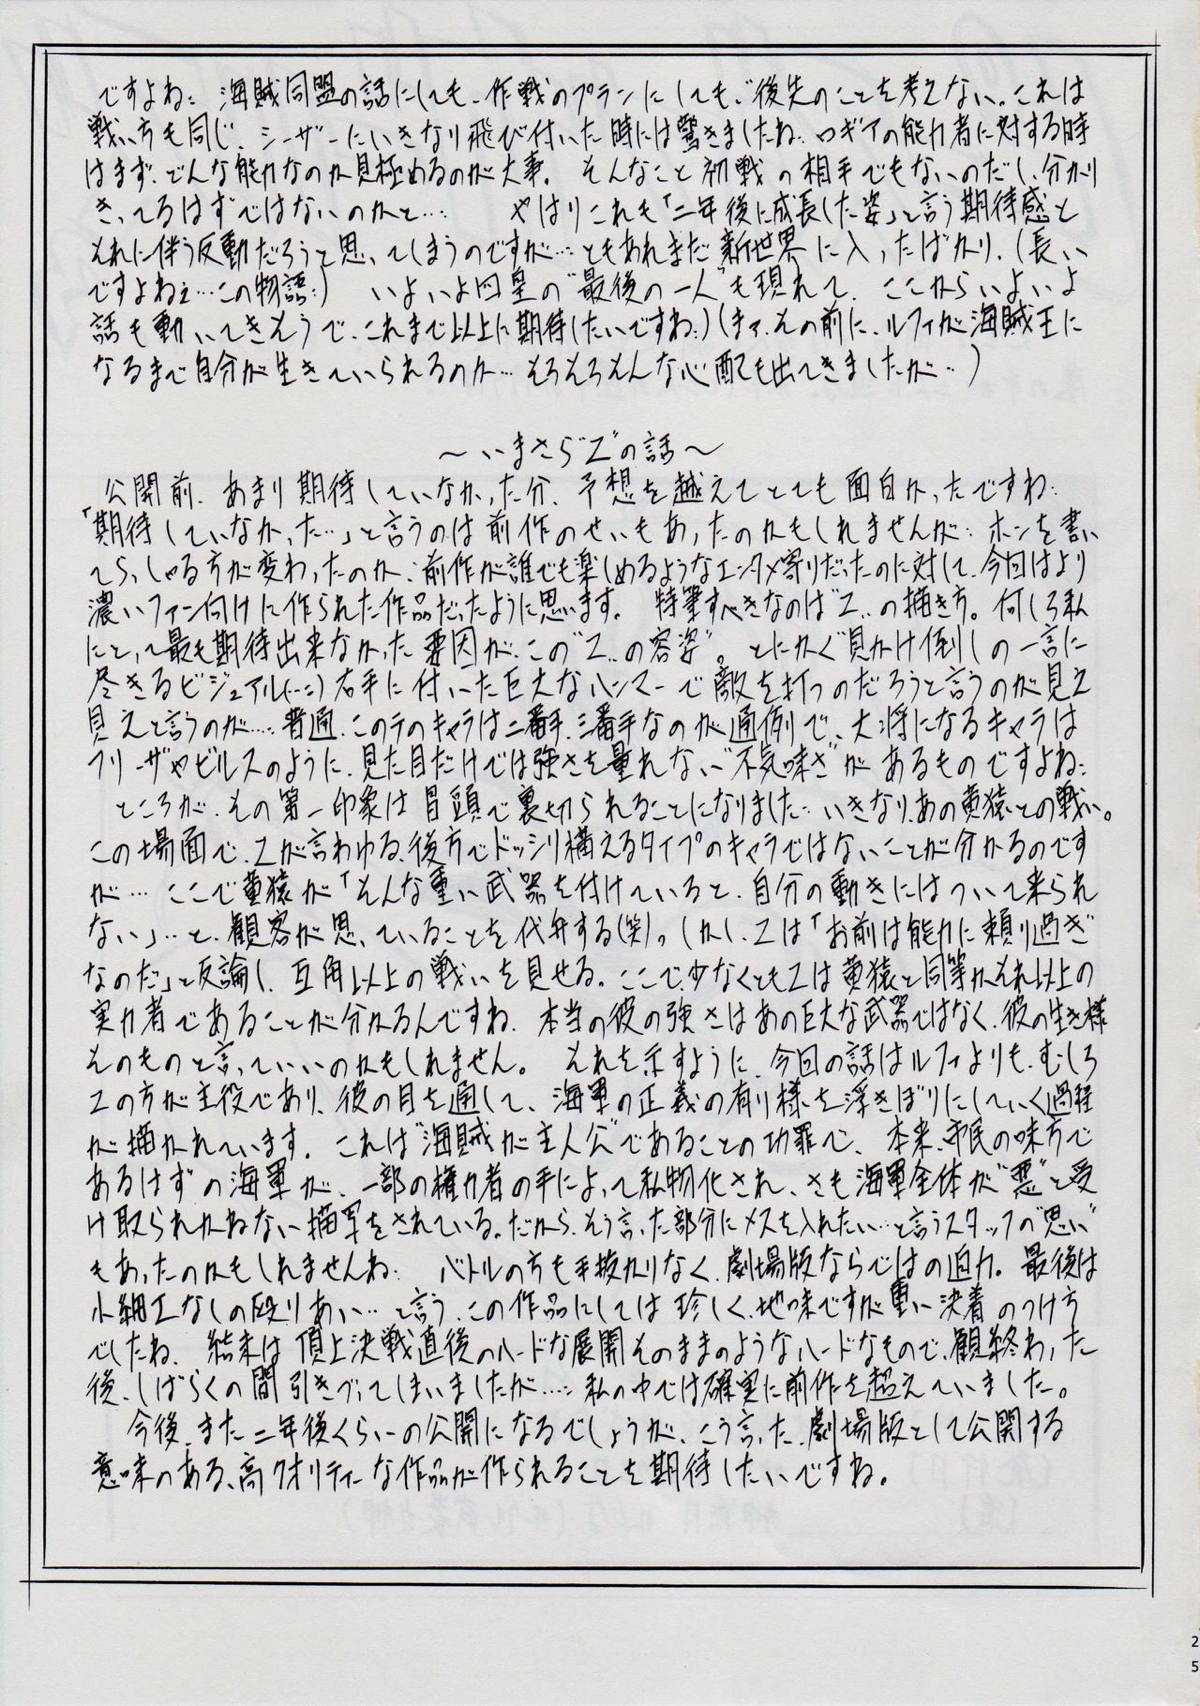 ですよね‥ 海賊同盟の話にしても、作戦のプランにしても、後先のことを考えない。これは
戦い方も同じ、シーザーにいきなり飛び付いた時には驚きましたね‥ロギアの能力者に対する時
はまず、どんな能力なのか見極めるのが大事。 そんなこと初戦の相手でもないのだし、分かり
きってるはずではないのかと…‥ やはりこれも「二年後に成長した姿」と言う期待感と
それに伴う反動だろうと思ってしまうのですが…‥ともあれまだ新世界に入ったばかり、(長い
ですよねぇ…この物語‥) いよいよ四皇の“最後の一人”も現れて、ここからいよいよ
話も動いてきそうで、これまで以上に期待したいですね‥)(まァ、その前に、ルフィが海賊王に
なるまで自分が生きていられるのか…そろそろそんな心配も出てきましたが‥)
～いまさら“Z”の話～
公開前、あまり期待していなかった分、予想を越えてとても面白かったですね‥
「期待していなかった…」と言うのは前作のせいもあったのかもしれませんが‥ホンを書い
てらっしゃる方が変わったのか、前作が誰でも楽しめるようなエンタメ寄りだったのに対して、今回はより
濃いファン向けに作られた作品だったように思います。 特筆すべきなのは“Z”の描き方。何しろ私
にとって最も期待出来なかった要因が、この“Z”の容姿”。とにかく“見かけ倒し”の一言に
尽きるビジュアル(…‥)右手に付いた巨大なハンマーで敵を打つのだろうと言うのが見え
見えと言うのが…‥普通、このテのキャラは二番手、三番手なのが通例で、大将になるキャラは
フリーザやビルスのように、見た目だけでは強さを量れない“不気味さ”があるものですよね‥
ところが、その第一印象は冒頭で裏切られることになりました‥いきなり、あの黄猿との戦い。
この場面で、Zが言わゆる、後方でドッシリ構えるタイプのキャラではないことが分かるのです
が… ここで黄猿が「そんな重い武器を付けていると、自分の動きにはついて来られ
ない」‥と、観客が思っていることを代弁する(笑)。しかし、Zは「お前は能力に頼り過ぎ
なのだ」と反論し、互角以上の戦いを見せる。ここで、少なくともZは黄猿と同等か、それ以上の
実力者であることが分かるんですね、本当の彼の強さはあの巨大な武器ではなく、彼の生き様
そのものと言っていいのかもしれません。 それを示すように、今回の話はルフィよりも、むしろ
Zの方が主役であり、彼の目を通して、海軍の正義の有り様を浮きぼりにしていく過程
が描かれています。これは“海賊が主人公”であることの功罪で、本来、市民の味方で
あるはずの海軍が、一部の権力者の手によって私物化され、さも海軍全体が“悪”と受
け取られかねない描写をされている。だから、そう言った部分にメスを入れたい…と言うスタッフの“思い”
もあったのかもしれませんね‥ バトルの方も手抜かりなく、劇場版ならではの迫力。最後は
小細工なしの殴りあい…と言う、この作品にしては珍しく、地味ですが重い決着のつけ方
でしたね、結末は頂上決戦直後のハードな展開そのままのようなハードなもので、観終わった
後、しばらくの間引きづってしまいましたが…‥私の中では確実に前作を超えていました。
今後、また二年後くらいの公開になるでしょうが、こう言った、劇場版として公開する
意味のある、高クオリティーな作品が作られることを期待したいですね。
25